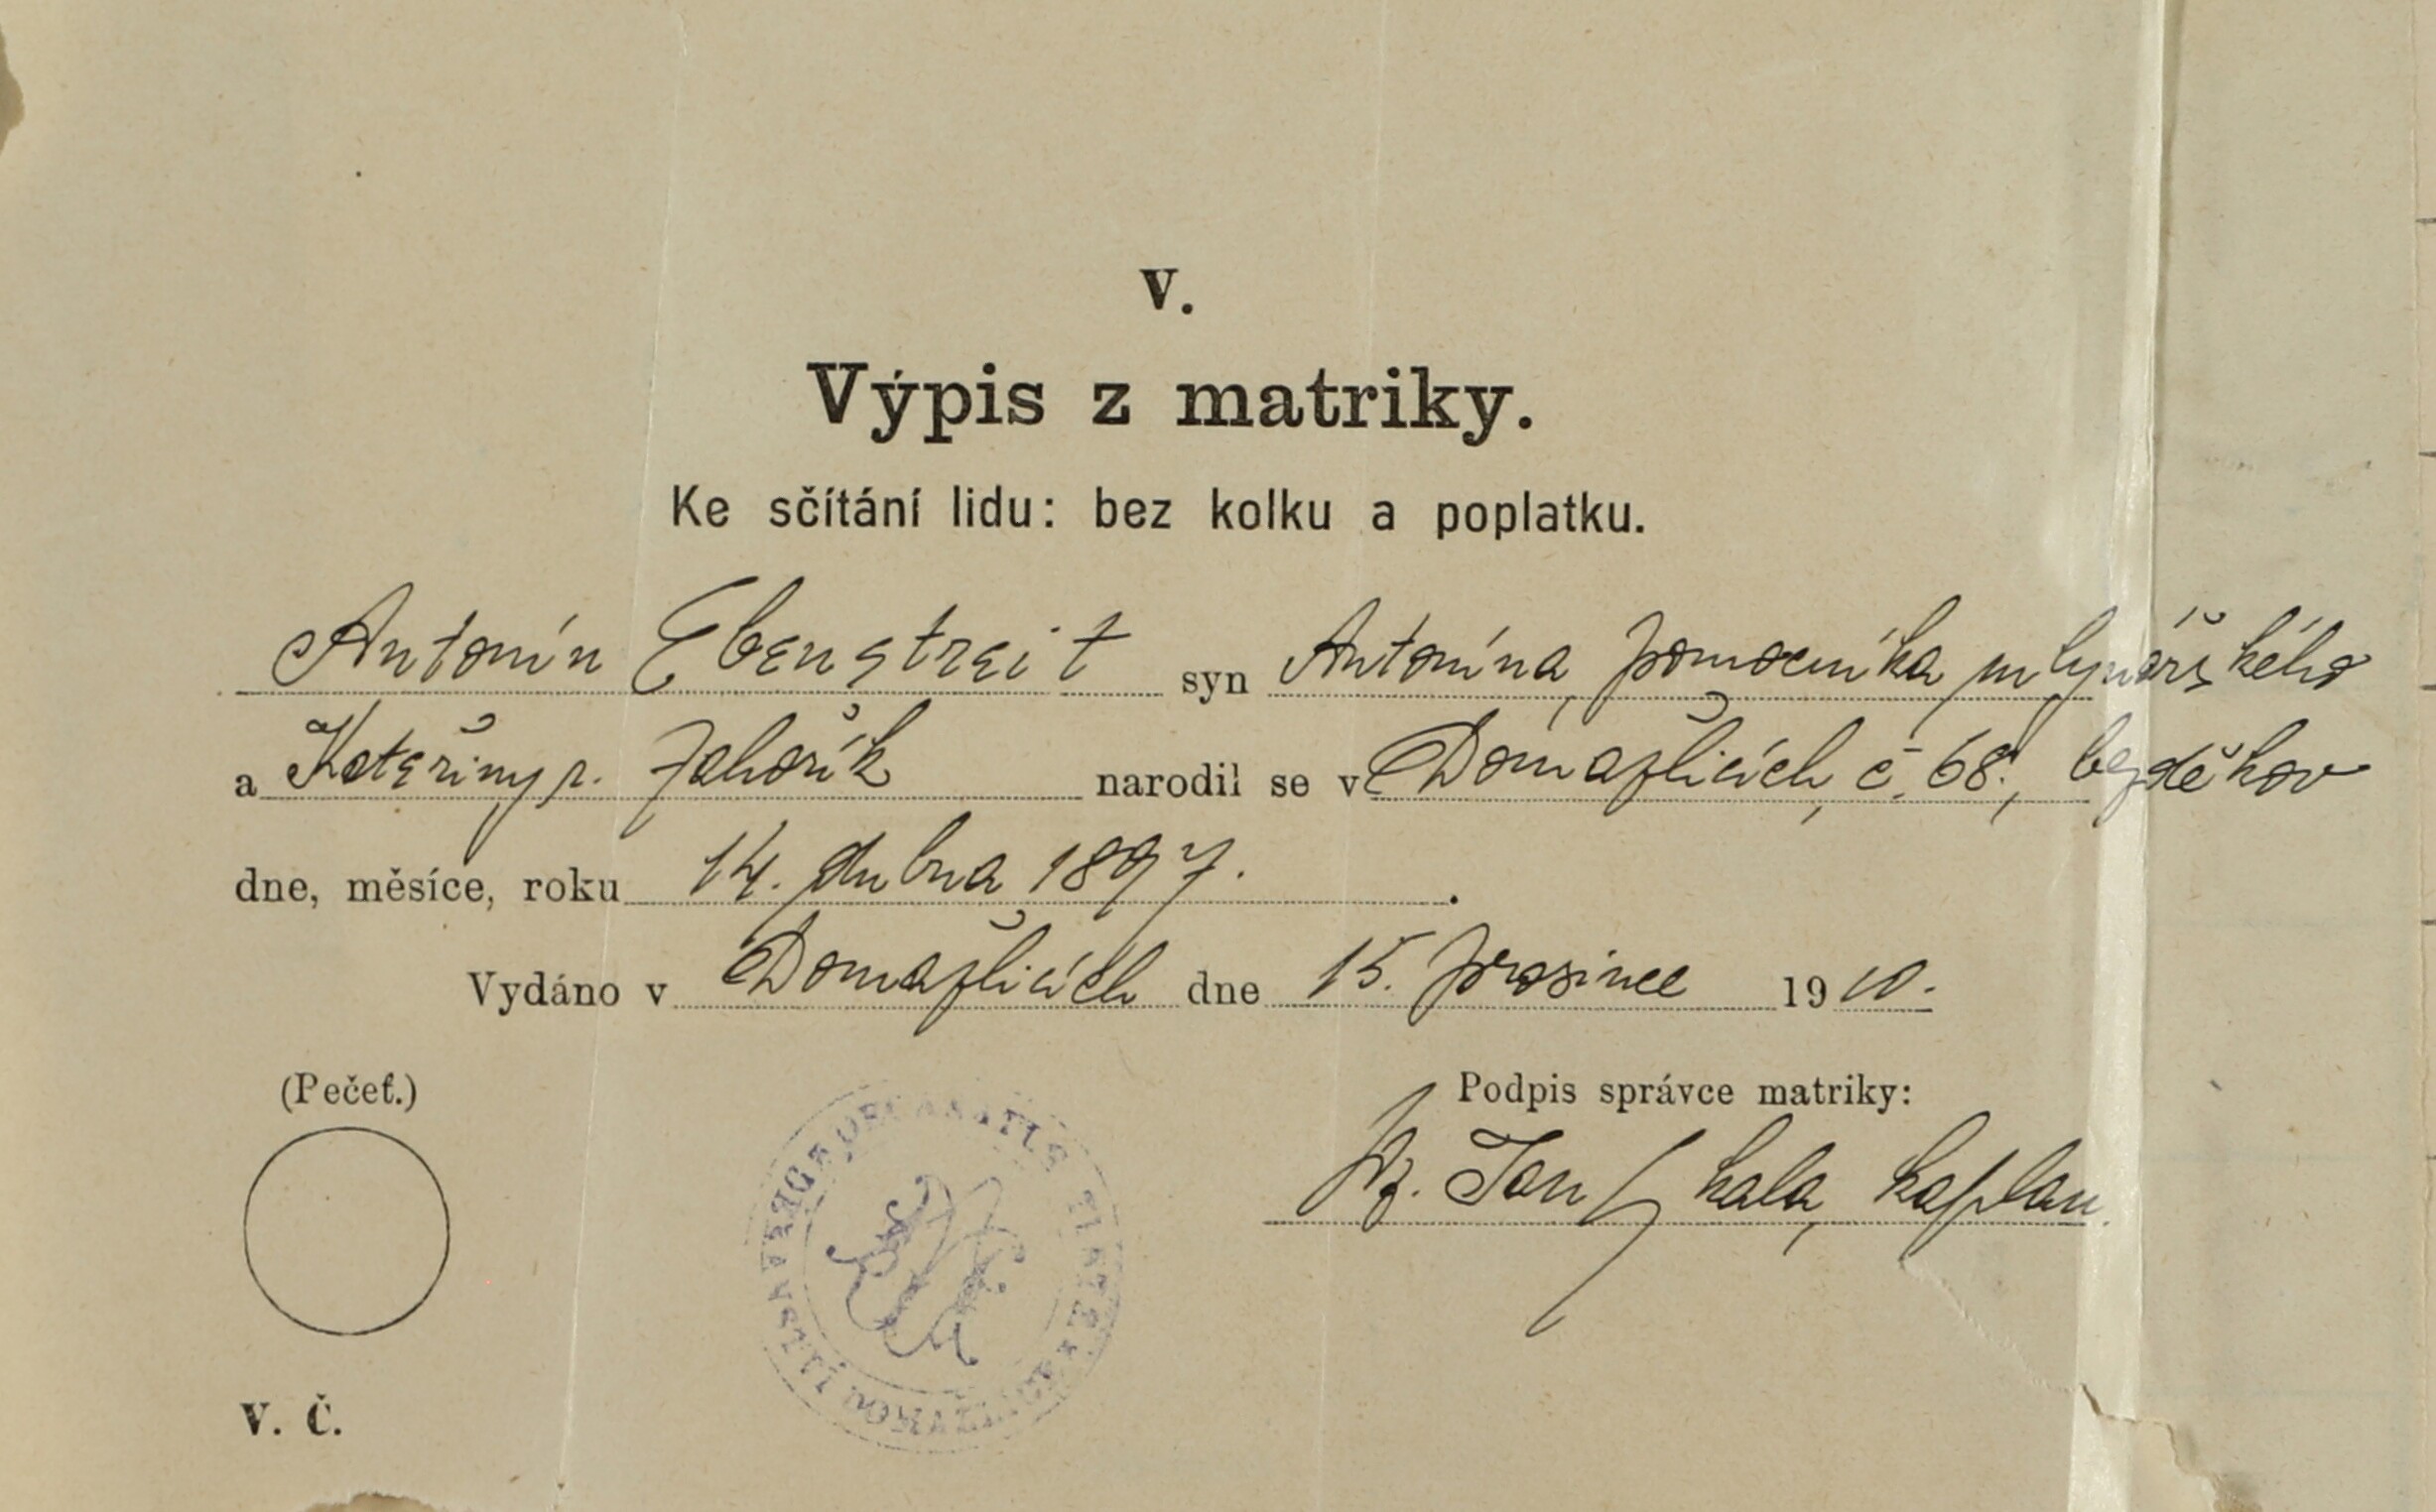 V.
Výpis z matriky.
Ke sčítání lidu: bez kolku a poplatku.
Antonín Ebenstreit syn Antonína, pomocníka mlynářského
a Kateřiny r. Jahořík narodil se v Domažlicích, č. 68, bezděkov
dne, měsíce, roku 14. dubna 1897.
Vydáno v Domažlicích dne 15. prosince 1910.
(Pečeť.)
Podpis správce matriky:
Jan Skala, kaplan.
V. Č.